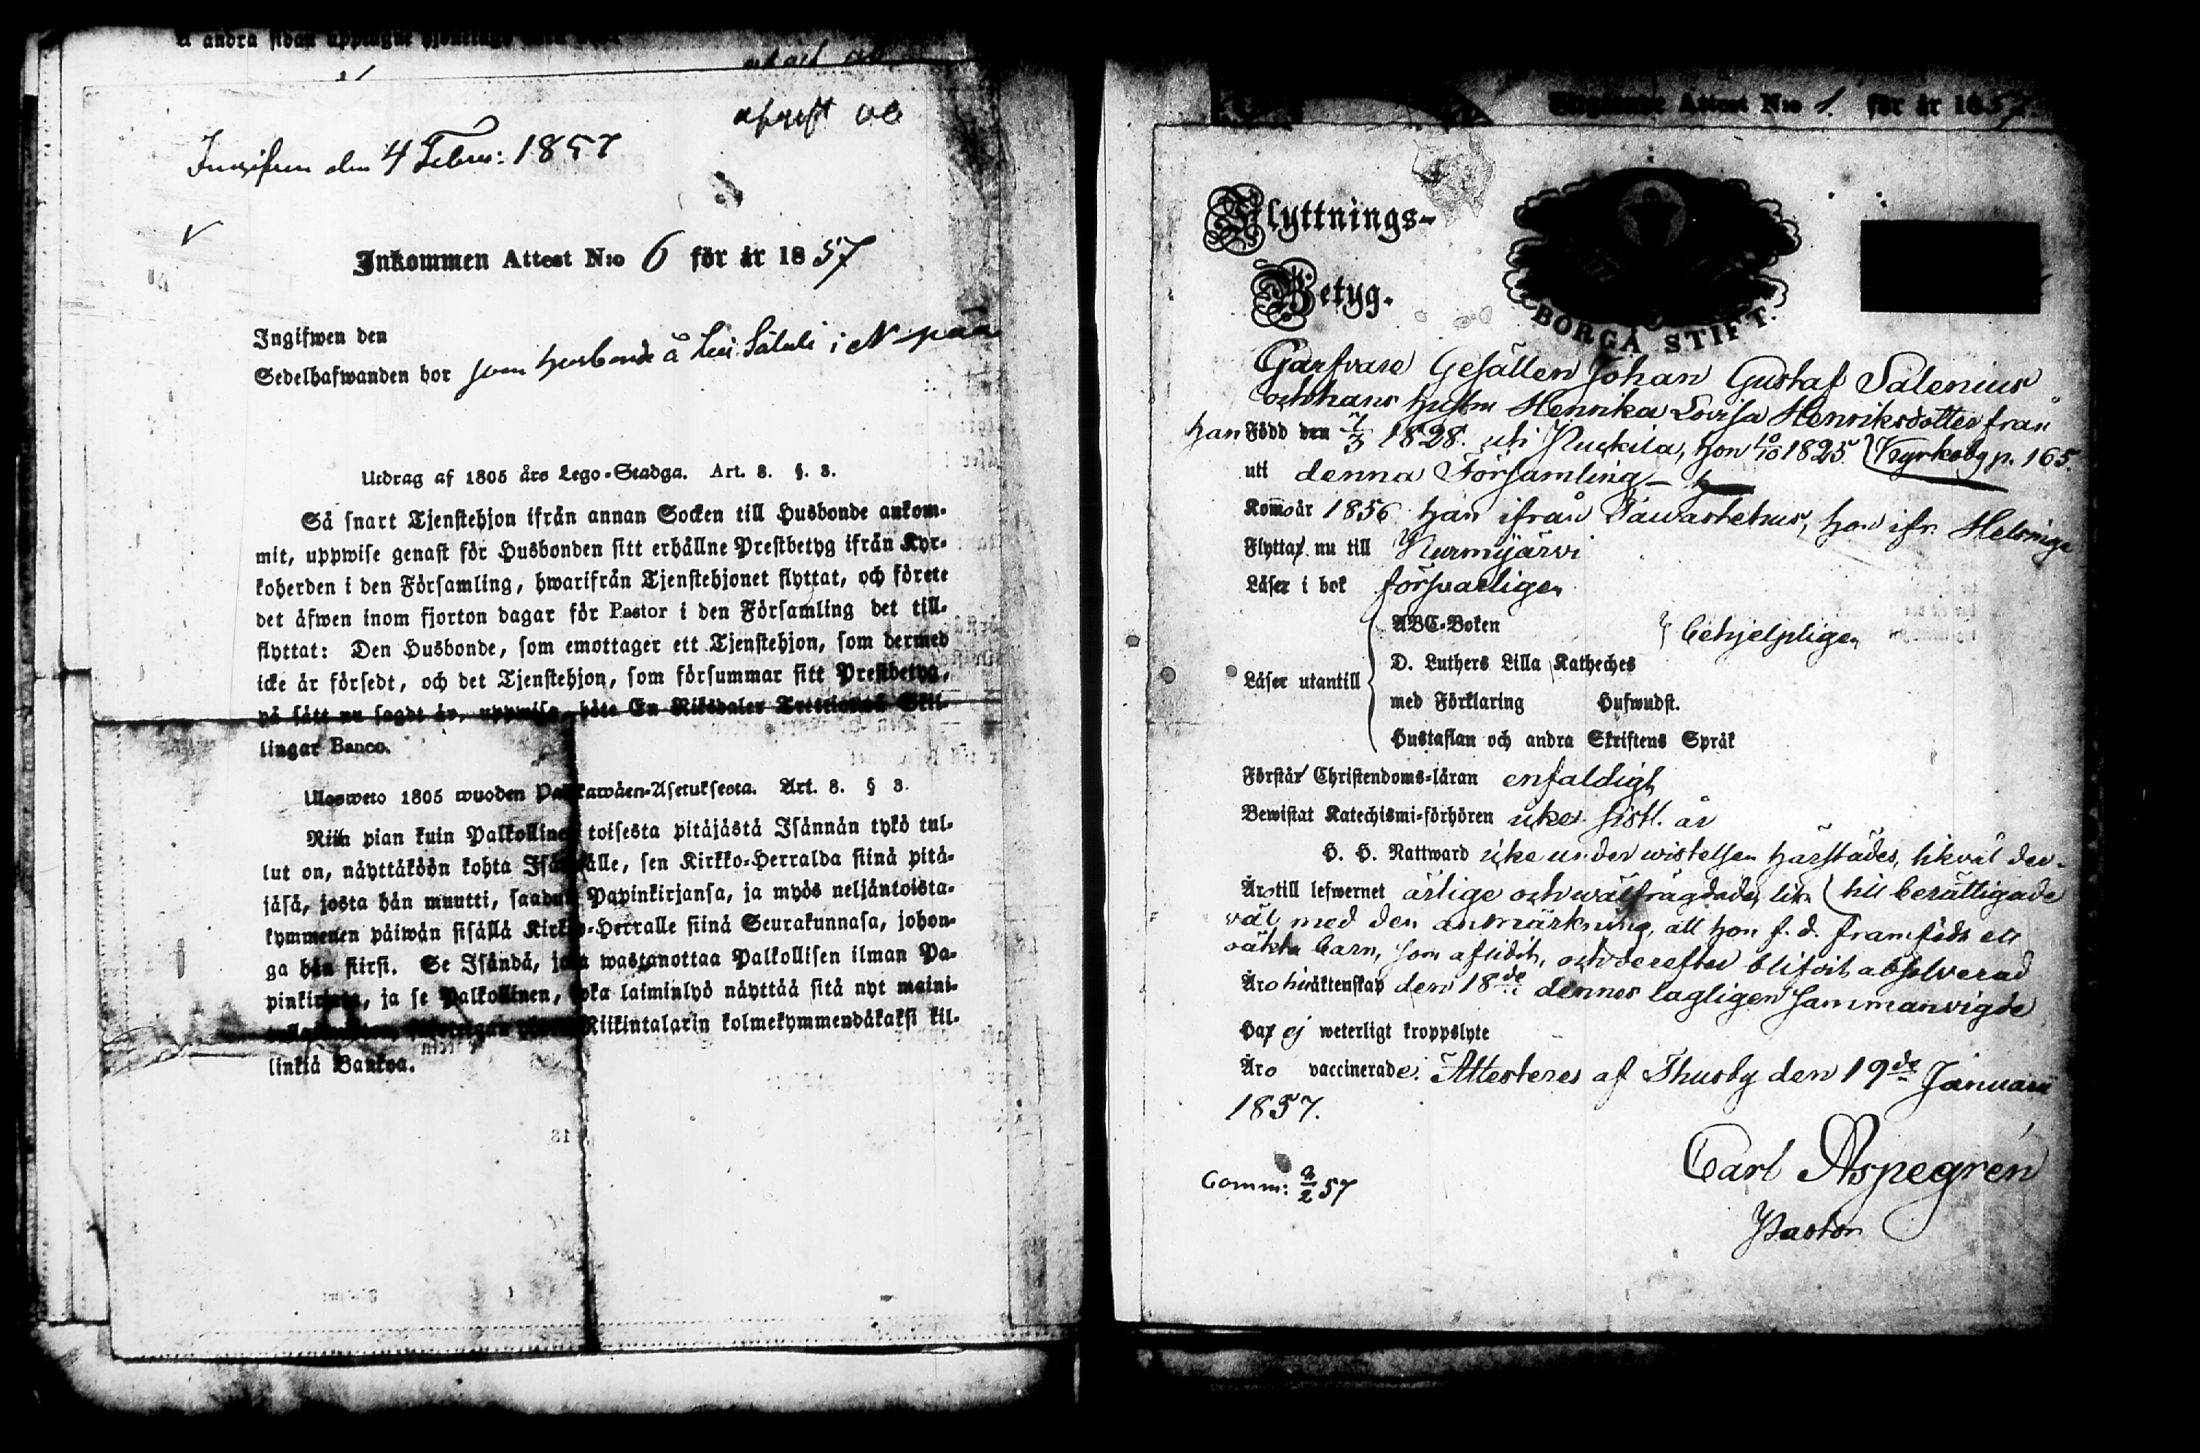 Ingifven den 4 Febru: 1857
Inkommen Attest N:o 6 för år 1857
Ingifwen den
Sedelhafwanden bor som husbonde å i
Utdrag af 1805 års Lego-Stadga. Art. 8. §. 3.
Så snart Tjenstehjon ifrån annan Socken till Husbonde ankom-
mit, uppwise genast för Husbonden sitt erhållne Prestbetyg ifrån Kyr-
koherden i den Församling, hwarifrån Tjenstehjonet flyttat, och förete
det äfwen inom fjorton dagar för Pastor i den Församling det till-
flyttat: Den Husbonde, som emottager ett Tjenstehjon, som dermed
icke är försedt, och det Tjenstehjon, som försummar sitt Prestbetyg,
på sätt nu sagdt är, uppwisa, böte En Riksdaler Trettiotvå Skil-
lingar Banco.
Ulosweto 1805 wuoden Palkkawäen-Asetuksesta. Art. 8. § 3.
Niin pian kuin Palkollinen toisesta pitäjästä Isännän tykö tul-
lut on, näyttäköön kohta Isännälle, sen Kirkko-Herralda siinä pitä-
jäsä, josta hän muutti, saadun Papinkirjansa, ja myös neljäntoista-
kymmenen päiwän sisällä Kirkko-Herralle siinä Seurakunnasa, johon-
ga hän siirsi. Se Isändä, joka wastanottaa Palkollisen ilman Pa-
pinkirjata, ja se Palkollinen, joka laiminlyö näyttää sitä nyt maini-
Riikintalarin kolmekymmendäkaksi kil-
linkiä Bankoa.
Utgående Attest N:o 1. för år 1857
Flyttnings-
Betyg.
BORGÅ STIFT.
Garfvare Gesällen Johan Gustaf Salenius
och hans hustru Henrika Lovisa Henriksdotter från
han Född den 7/3 1828. uti hon 10/10 1825 Kyrkobg p. 165.
uti denna Församling
Kommo år 1856 han ifrån Tavastehus, hon ifr. Helsinge
Flytta nu till Nurmijärvi
Läser i bok försvarligen
ABC-Boken
behjelpligen
D. Luthers Lilla Katheches
Läser utantill
med Förklaring Hufwudst.
Hustaflan och andra Skriftens Språk
Förstår Christendoms-läran enfaldigt
Bewistat Katechismi-förhören sistl. år
H. H. Nattward icke under wistelsen härstädes, likväl der-
Äro till lefwernet ärlige och wälfrägdade, lik- till berättigade
väl med den anmärkning, att hon f. d. framfödt ett
oäkta barn, som aflidit, och derefter blifvit absolverad
Äro hi äktenskap den 18de dennes lagligen sammanvigde
Ha ej weterligt kroppslyte
Äro vaccinerade. Attesteres af Thusby den 19de Januarii
1857.
Carl Aspegrén
Pastor
Comm: 3/2 57